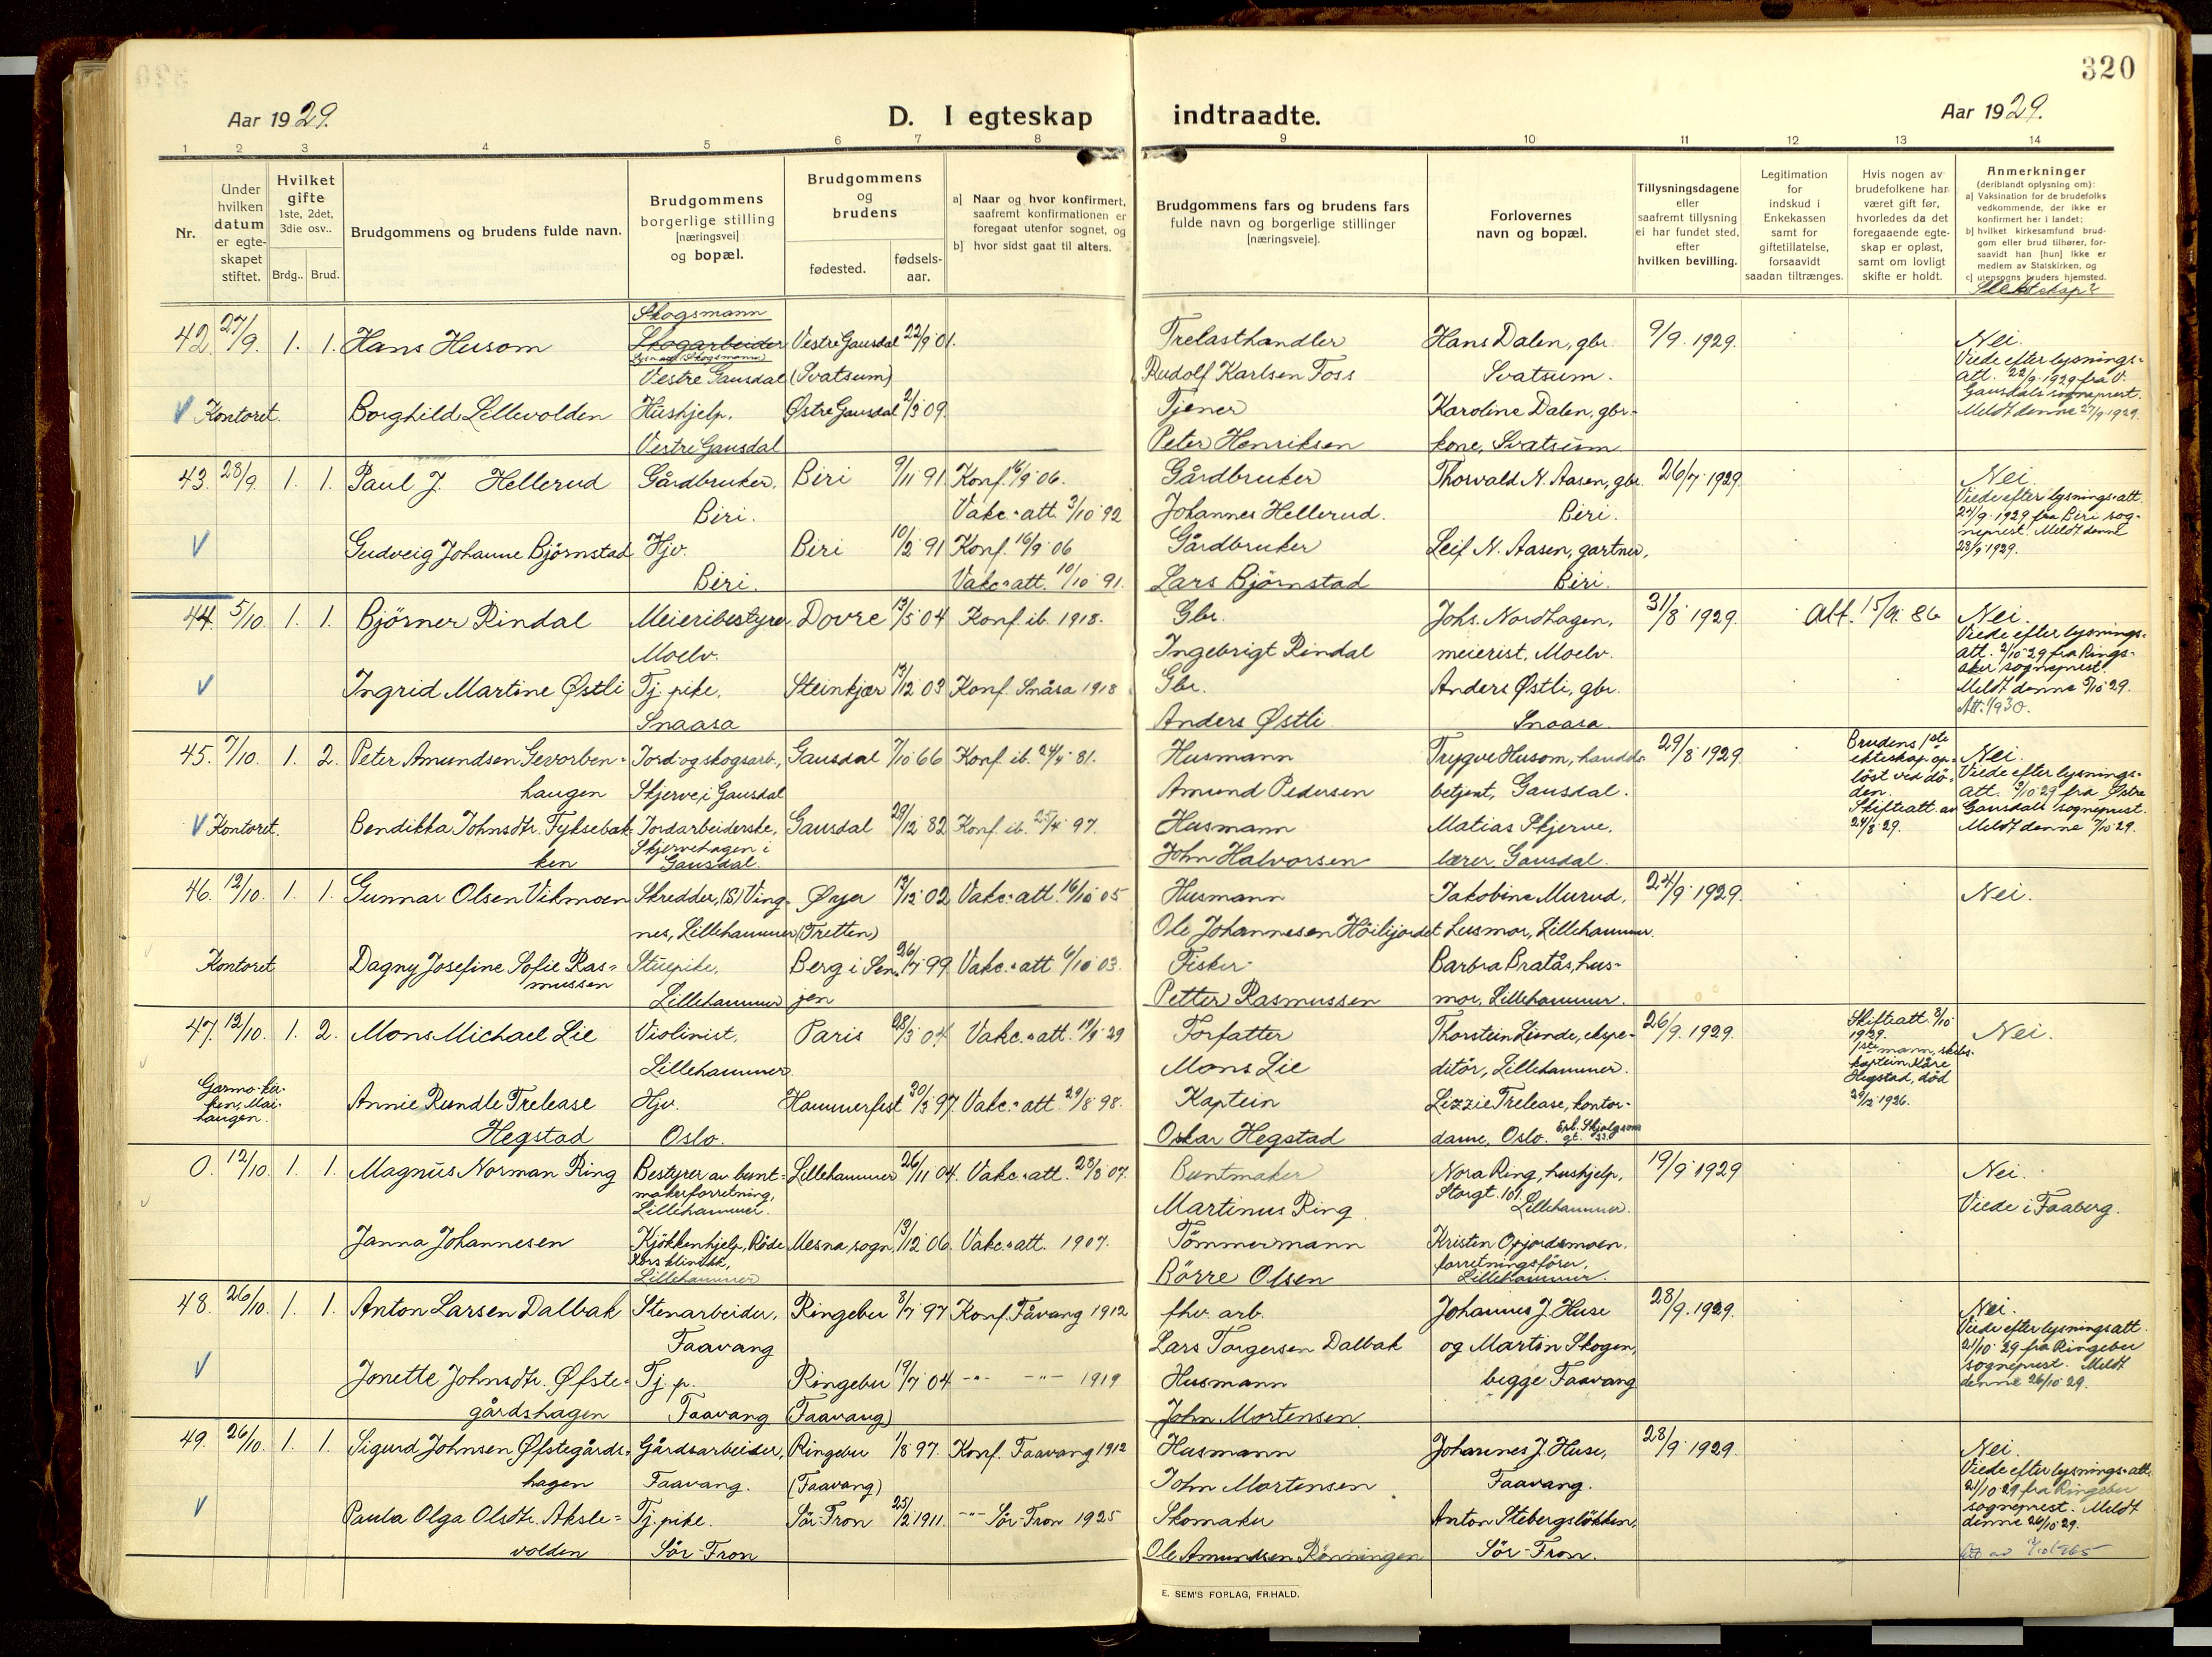 320
Aar 1929.
D. I egteskap indtraadte.
Aar 1929.
1 2 3 4 5 6 7 8 9 10 11 12 13 14
Nr.
Under hvilken datum er egte-skapet stiftet.
Hvilket gifte
1ste, 2det, 3die osv..
Brdg.. Brud.
Brudgommens og brudens fulde navn.
Brudgommens borgerlige stilling [næringsvei] og bopæl.
Brudgommens og brudens
fødested.
fødsels-aar.
a] Naar og hvor konfirmert, saafremt konfirmationen er foregaat utenfor sognet, og
b] hvor sidst gaat til alters.
Brudgommens fars og brudens fars
fulde navn og borgerlige stillinger
[næringsveie].
Forlovernes navn og bopæl.
Tillysningsdagene eller saafremt tillysning ei har fundet sted, efter hvilken bevilling.
Legitimation for indskud i Enkekassen samt for giftetillatelse, forsaavidt saadan tiltrænges.
Hvis nogen av brudefolkene har været gift før, hvorledes da det foregaaende egte-skap er opløst, samt om lovligt skifte er holdt.
Anmerkninger
(deriblandt oplysning om):
a] Vaksination for de brudefolks vedkommende, der ikke er konfirmert her i landet;
b] hvilket kirkesamfund brud-gom eller brud tilhører, for-saavidt han [hun] ikke er medlem av Statskirken, og
c] utensogns bruders hjemsted.
Slektskap?
42. 27/9. 1. 1. Hans Husom
Skogsmann
Skogarbeider
Vestre Gausdal
Vestre Gausdal (Svatsum) 22/9 01.
Trelasthandler
Rudolf Karlsen Foss
Hans Dalen, gbr. Svatsum.
9/9. 1929.
Nei.
Viede efter lysnings-
att. 22/9 1929 fra V.
Gausdals sogneprest.
Meldt denne 27/9 1929.
Kontoret. Borghild Lillevolden
Hushjelp. Vestre Gausdal
Østre Gausdal 2/3 09.
Tjener
Peter Henriksen
Karoline Dalen, gbr-
kone, Svatsum
43. 28/9. 1. 1. Paul J. Hellerud
Gårdbruker, Biri.
Biri 9/11 91 Konf. 16/9 06.
Vakc. att. 3/10 92
Gårdbruker
Johannes Hellerud.
Thorvald N. Aasen, gbr. Biri.
26/7 1929.
Nei.
Viede efter lysnings-att.
24/9 1929 fra Biri sog-
neprest. Meldt denne
28/9 1929.
Gudveig Johanne Bjørnstad
Hjv. Biri.
Biri 10/2 91 Konf. 16/9 06
Vakc. att. 10/10 91.
Gårdbruker
Lars Bjørnstad
Leif N. Aasen, gartner, Biri.
44. 5/10. 1. 1. Bjørner Rindal
Meieribestyrer, Moelv.
Dovre 13/5 04 Konf. ib. 1918.
Gbr.
Ingebrigt Rindal
Johs. Nordhagen,
meierist, Moelv.
31/8 1929.
Att. 15/9. 86
Nei.
Viede efter lysnings-
att. 2/10 29 fra Rings-
aker sogneprest.
Meldt denne 5/10 29.
Ingrid Martine Østli
Tj. pike, Snaasa
Steinkjær 13/12 03 Konf. Snåsa 1918
Gbr.
Anders Østli
Anders Østli, gbr. Snaasa.
45. 7/10. 1. 2. Peter Amundsen Gevorben-
haugen
Jord og skogsarb.,
Skjerve, i Gausdal
Gausdal 7/10 66 Konf. ib. 24/4 81.
Husmann
Amund Pedersen
Trygve Husom, handels-
betjent, Gausdal.
29/8 1929
Brudens 1ste
ekteskap op-
löst ved dö-
den.
Skifteatt. av
24/8 29.
Nei.
Viede efter lysnings-
att. 2/10 29 fra Østre
Gausdals sogneprest.
Meldt denne 7/10 29.
Kontoret. Bendikka Johnsdtr. Fyksebak-
ken
Jordarbeiderske,
Skjervehagen i
Gausdal.
Gausdal 29/12 82 Konf. ib. 25/4 97.
Husmann
John Halvorsen
Matias Skjerve,
lærer, Gausdal.
46. 12/10. 1. 1. Gunnar Olsen Vikmoen
Skredder, (S) Ving-
nes, Lillehammer
Øyer (Tretten) 13/12 02 Vakc. att. 16/10 05
Husmann
Ole Johannesen Höilijordet
Jakobine Murud,
Husmor, Lillehammer.
24/9 1929.
Nei.
Kontoret Dagny Josefine Sofie Ras-
mussen
Stuepike, Lillehammer
Berg i Sen-
jen 26/7 99 Vakc. att 6/10 03.
Fisker
Petter Rasmussen
Barbra Bratås, hus-
mor, Lillehammer.
47. 12/10. 1. 2. Mons Michael Lie
Violinist, Lillehammer
Paris 28/3 04 Vakc. att. 19/9 29
Forfatter
Mons Lie
Thorstein Lunde, ekspe-
ditör, Lillehammer.
26/9. 1929.
Skifteatt. 3/10
1929.
1ste mann, skibs-
kaptein Kåre
Hegstad, död
29/12 1926.
Nei.
Garmo-kir-
ken, Mai-
haugen. Annie Rundle Trelease
Hegstad
Hjv. Oslo.
Hammerfest 30/3 97. Vakc. att. 29/8 98.
Kaptein
Oskar Hegstad
Lizzie Trelease, kontor-
dame, Oslo. Erl. Skjalgsons gt. 23.
0. 12/10. 1. 1. Magnus Norman Ring
Bestyrer av bunt-
makerforretning,
Lillehammer.
Lillehammer 26/11 04. Vakc. att. 28/8 07.
Buntmaker
Martinus Ring
Nora Ring, hushjelp,
Storgt. 101. Lillehammer.
19/9 1929
Nei.
Viede i Faaberg.
Janna Johannesen
Kjökkenhjelp, Röde
Kors klinikk,
Lillehammer
Mesna, sogn, 13/12 06. Vakc. att. 1907.
Tömmermann
Börre Olsen
Kristen Opjordsmoen.
forretningsförer,
Lillehammer.
48. 26/10. 1. 1. Anton Larsen Dalbak
Stenarbeider, Faavang
Ringebu 8/7 97 Konf. Fåvang 1912
fhv. arb.
Lars Torgersen Dalbak
Johannes J. Huse
og Martin Skogen,
begge Faavang
28/9. 1929.
Nei.
Viede efter lysningsatt.
21/10 29 fra Ringebu
sogneprest. Meldt
denne 26/10 29.
Jonette Johnsdtr. Øfste-
gårdshagen
Tj. p. Faavang
Ringebu (Faavang) 19/7 04 -"- -"- 1919
Husmann
John Mortensen
49. 26/10. 1. 1. Sigurd Johnsen Øfstegårds-
hagen
Gårdsarbeider, Faavang.
Ringebu (Faavang) 1/8 97. Konf. Faavang 1912
Husmann
John Mortensen
Johannes J. Huse, Faavang.
28/9 1929.
Nei.
Viede efter lysnings-att.
21/10 29 fra Ringebu
sogneprest. Meldt
denne 26/10 29.
Paula Olga Olsdtr. Aksle-
volden
Tj. pike. Sör-Fron
Sör-Fron 25/2 1911. -"- Sör-Fron 1925
Skomaker
Ole Amundsen Rönningen
Anton Stebergslökken,
Sör-Fron.
E. SEM'S FORLAG, FR.HALD.